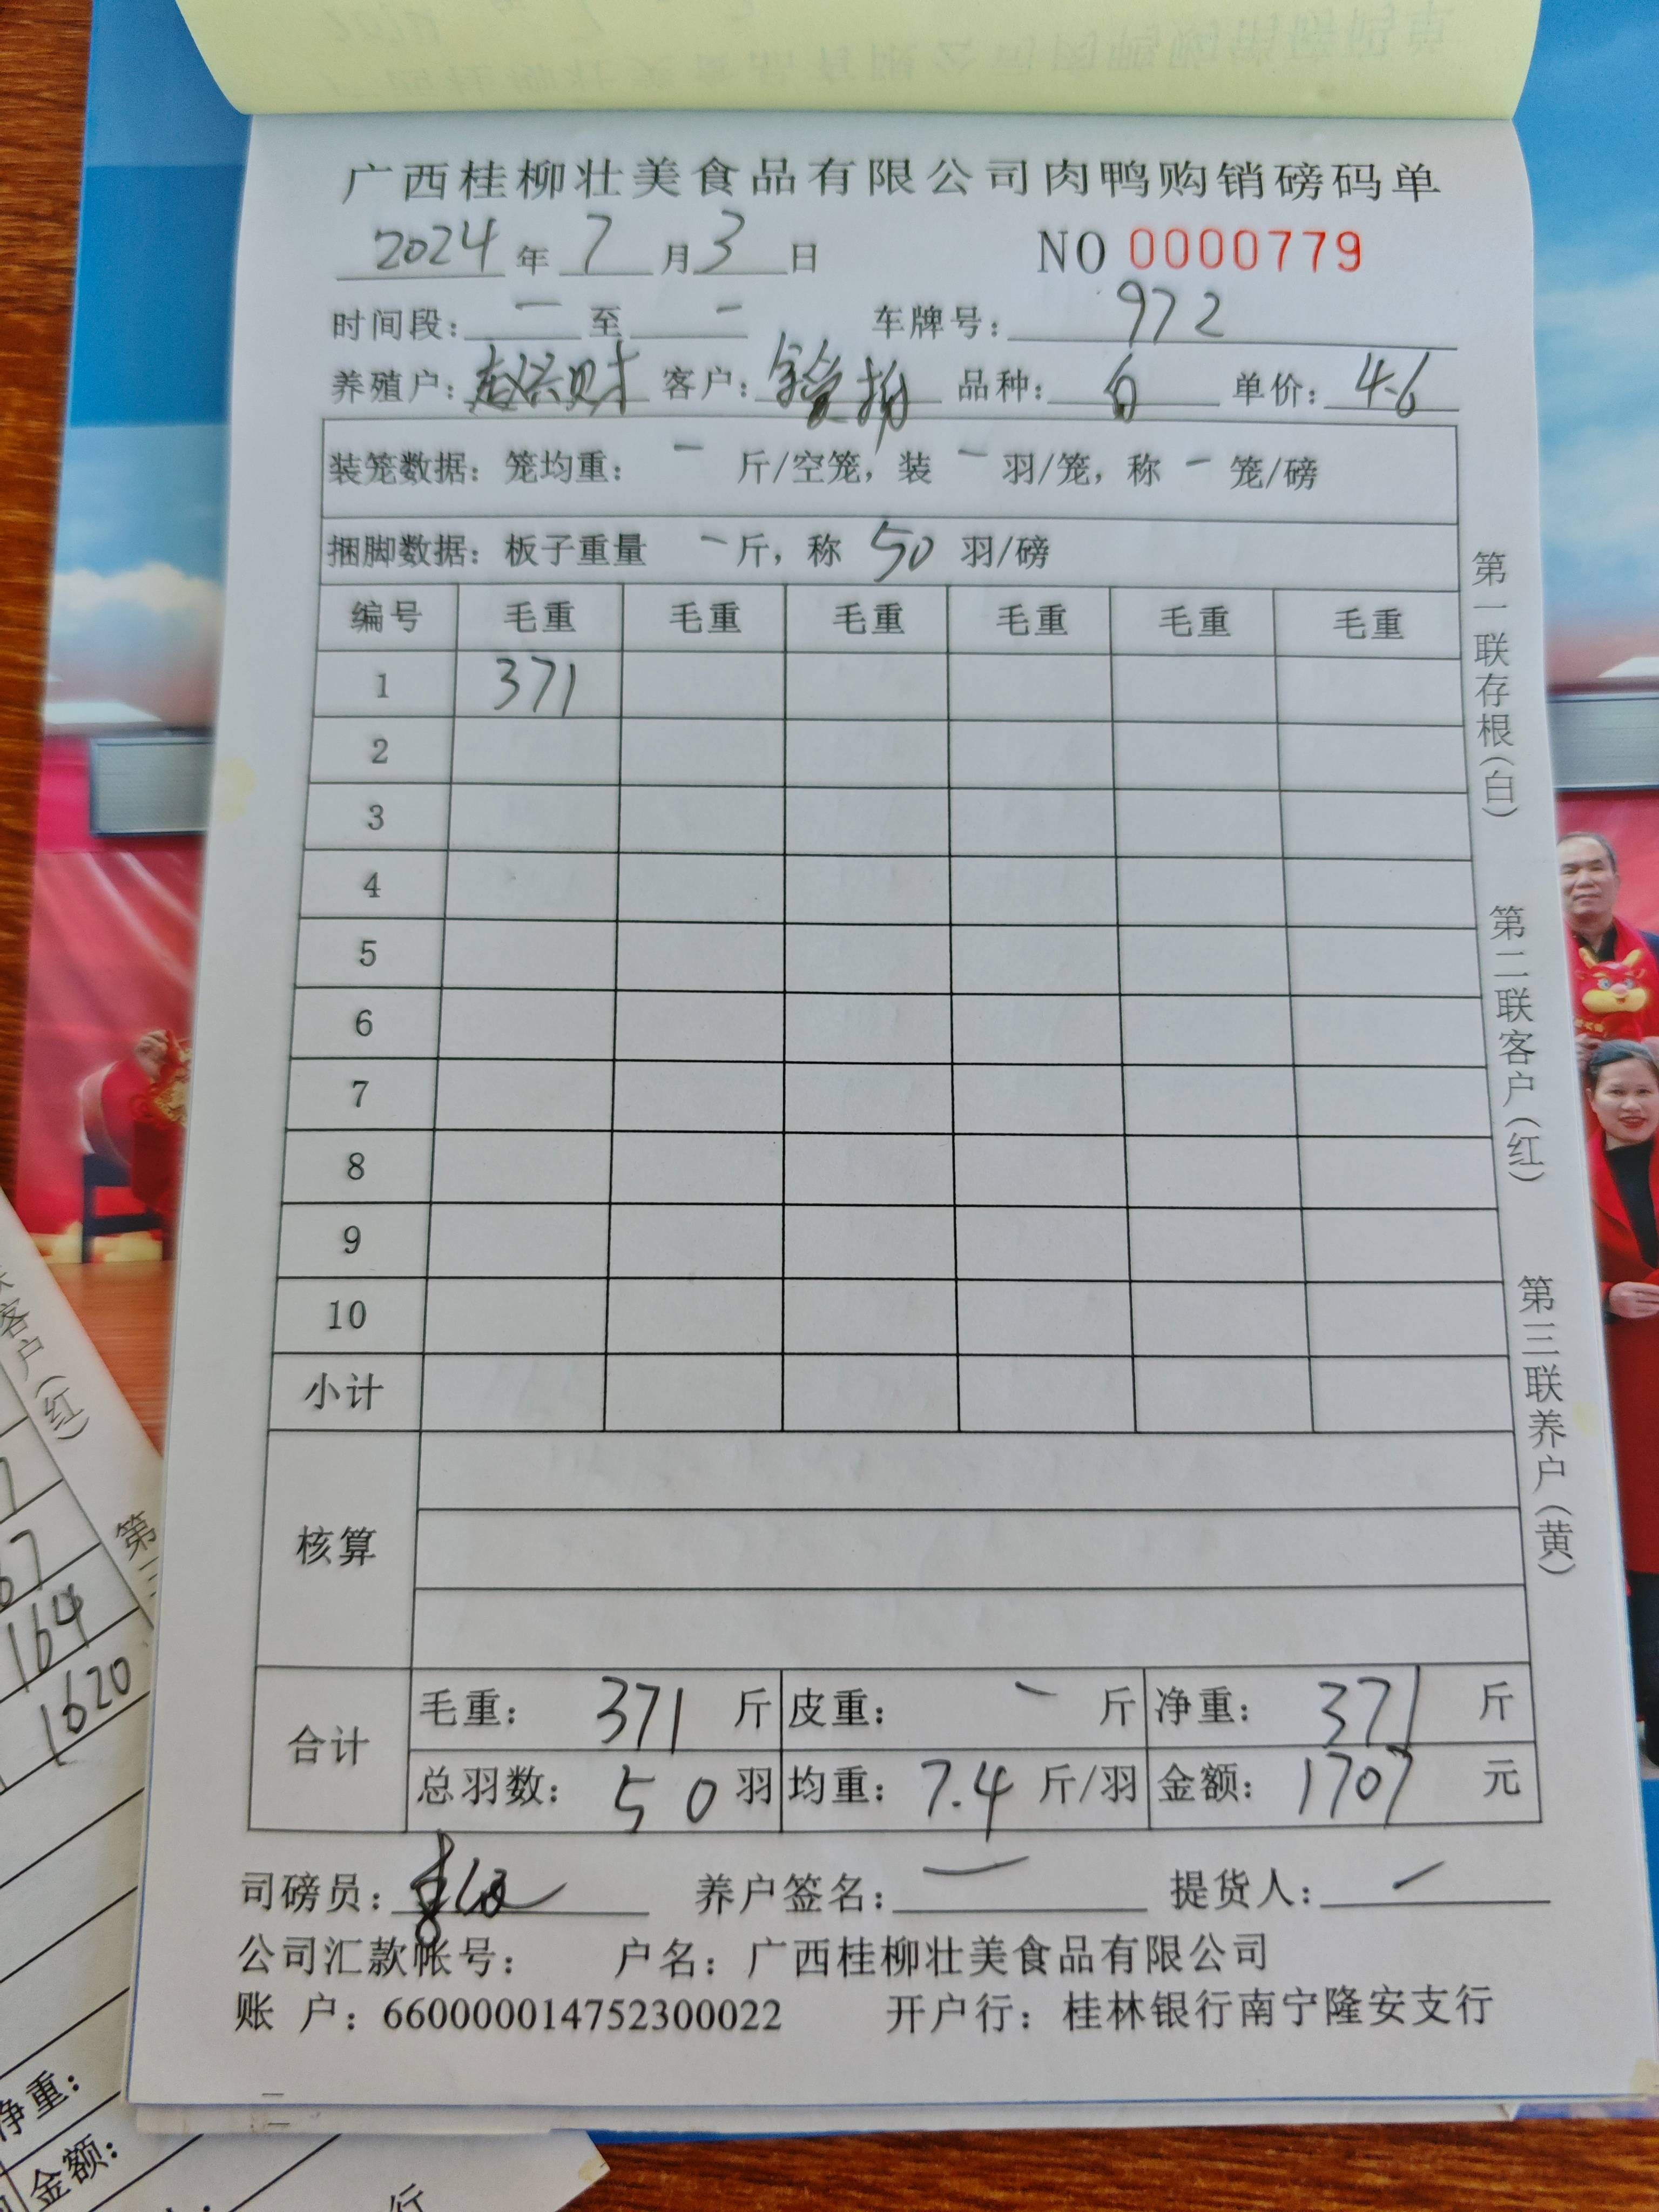 广西桂柳壮美食品有限公司肉鸭购销磅码单
2024年7月3日 NO 0000779
时间段:一至一 车牌号:972
养殖户:赵兴财 客户: 品种:白 单价:4.6
装笼数据:笼均重:一斤/空笼,装一羽/笼,称一笼/磅
捆脚数据:板子重量一斤,称50羽/磅
编号 毛重 毛重 毛重 毛重 毛重 毛重
1 371
2
3
4
5
6
7
8
9
10
小计
核算
合计
毛重:371斤 皮重:一斤 净重:371斤
总羽数:50羽 均重:7.4斤/羽 金额:1707元
司磅员: 养户签名:一 提货人:一
公司汇款帐号: 户名:广西桂柳壮美食品有限公司
账 户:660000014752300022 开户行:桂林银行南宁隆安支行
第一联存根(白) 第二联客户(红) 第三联养户(黄)
客户(红)
第三
67
164
1620
净重:
金额:
行